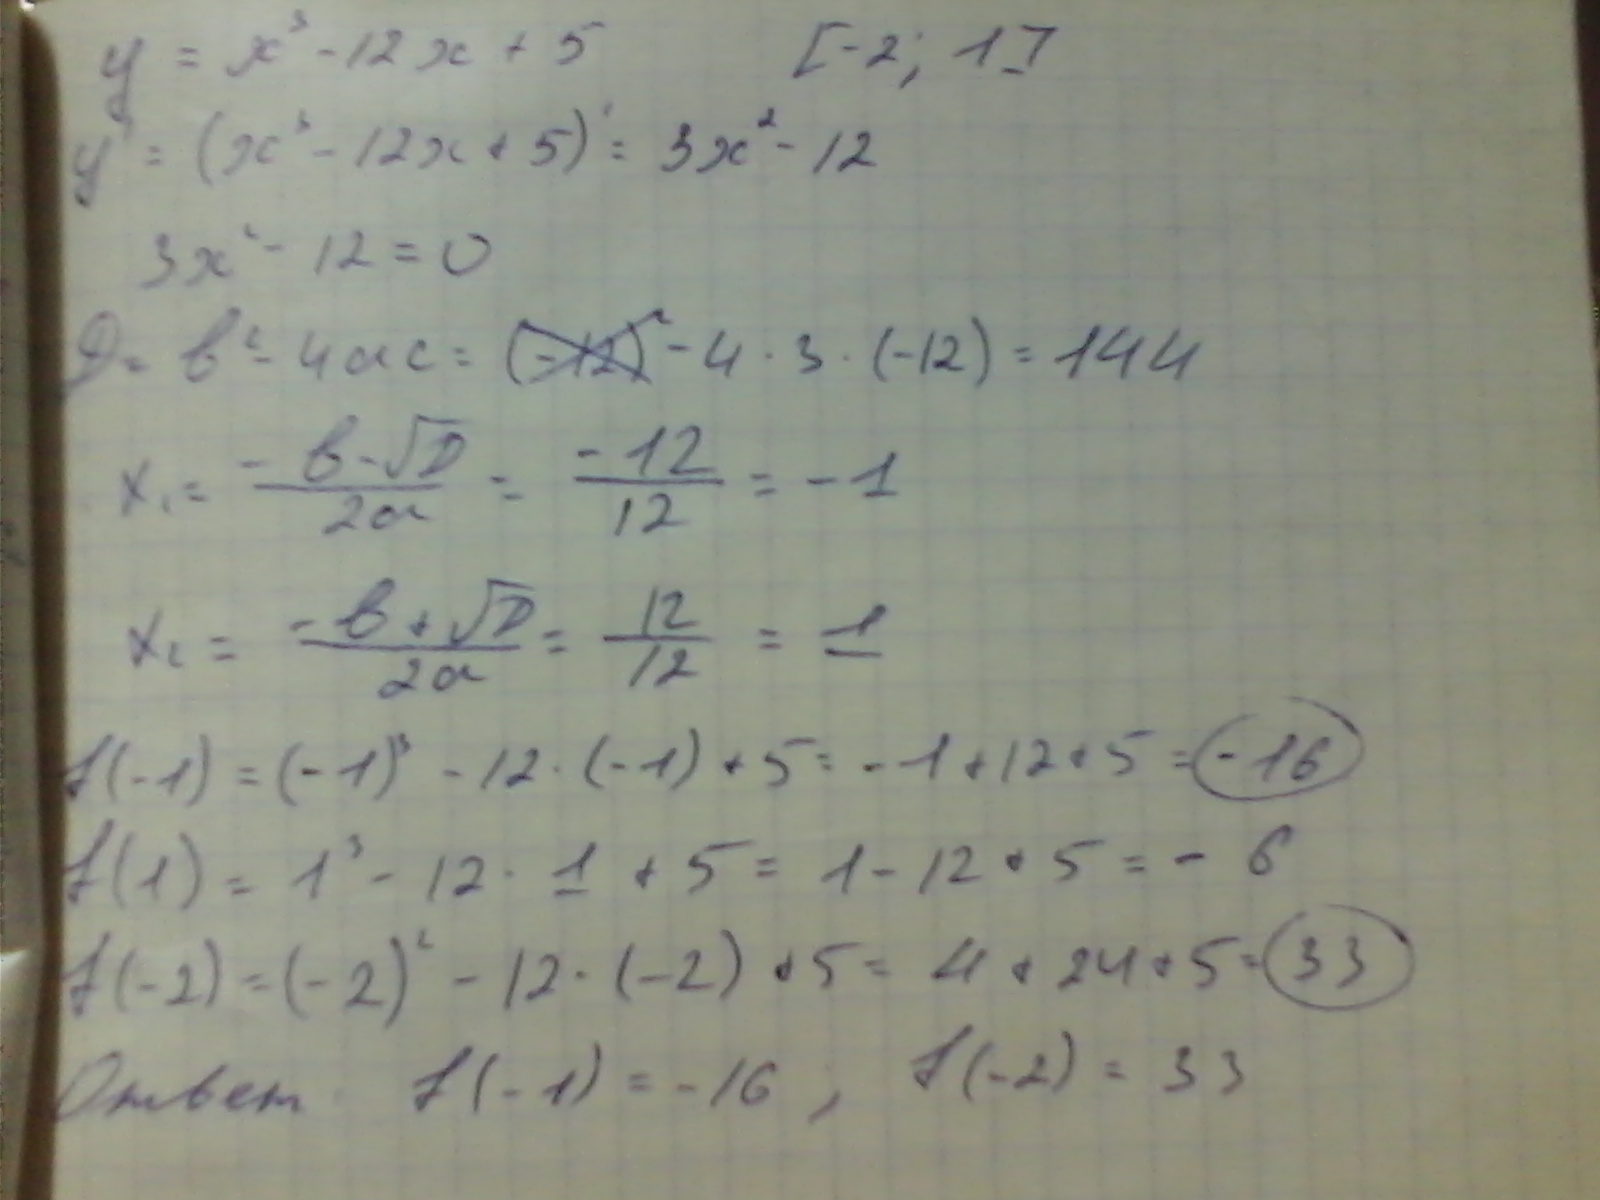 y = x³ - 12x + 5 [-2; 1]
y' = (x³ - 12x + 5)' = 3x² - 12
3x² - 12 = 0
D = b² - 4ac = (-12)² - 4 · 3 · (-12) = 144
x₁ = (-b - √D)/(2a) = -12/12 = -1
x₂ = (-b + √D)/(2a) = 12/12 = 1
f(-1) = (-1)³ - 12 · (-1) + 5 = -1 + 12 + 5 = -16
f(1) = 1³ - 12 · 1 + 5 = 1 - 12 + 5 = - 6
f(-2) = (-2)² - 12 · (-2) + 5 = 4 + 24 + 5 = 33
Ответ. f(-1) = -16, f(-2) = 33